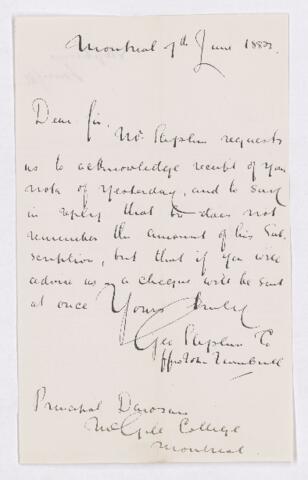 Montreal 7th June 1883
Dear Sir,
Mr Stephen requests
us to acknowledge receipt of your
note of yesterday, and to say
in reply that he does not
remember the amount of his Sub-
scription, but that if you will
advise us a cheque will be sent
at once Yours truly
Geo Stephen Co
Principal Dawson
McGill College
Montreal